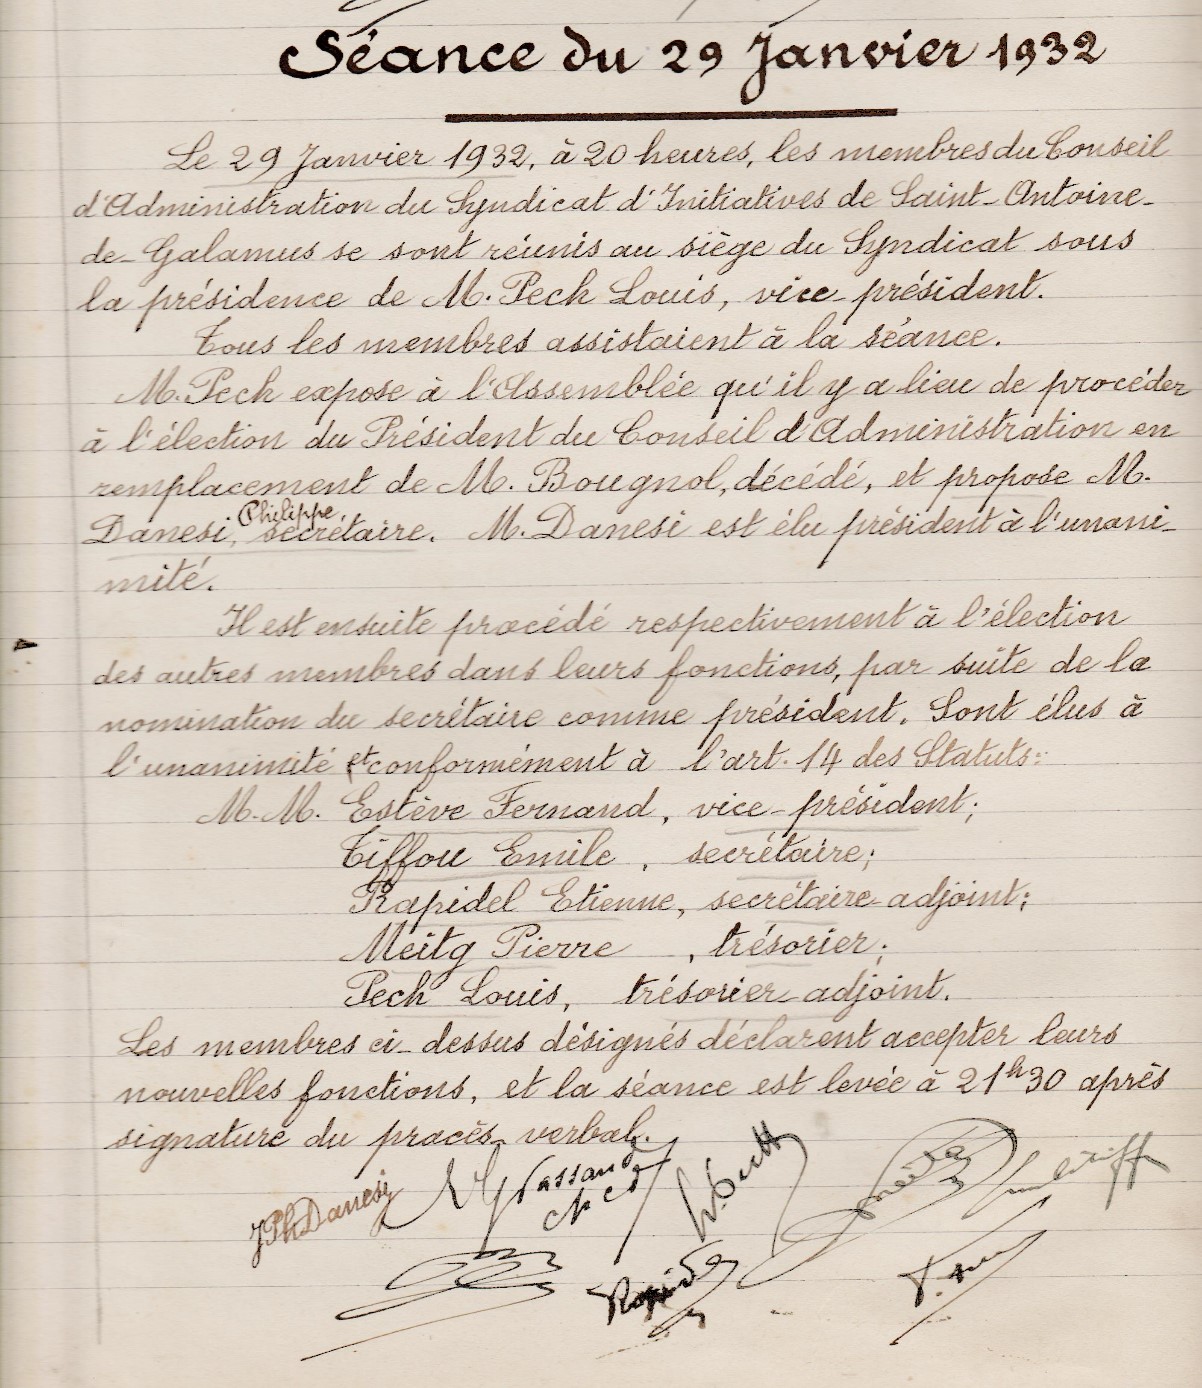 Séance du 29 Janvier 1932
Le 29 Janvier 1932, à 20 heures, les membres du Conseil
d'Administration du Syndicat d'Initiatives de Saint-Antoine-
de-Galamus se sont réunis au siège du Syndicat sous
la présidence de M. Pech Louis, vice-président.
Tous les membres assistaient à la séance.
M. Pech expose à l'Assemblée qu'il y a lieu de procéder
à l'élection du Président du Conseil d'Administration en
remplacement de M. Bougnol, décédé, et propose M.
Danesi, Philippe, secrétaire. M. Danesi est élu président à l'unani-
mité.
Il est ensuite procédé respectivement à l'élection
des autres membres dans leurs fonctions, par suite de la
nomination du secrétaire comme président. Sont élus à
l'unanimité et conformément à l'art. 14 des Statuts:
M.M. Estève Fernand, vice-président;
Tiffou Emile, secrétaire;
Rapidel Etienne, secrétaire-adjoint;
Meitg Pierre, trésorier;
Pech Louis, trésorier-adjoint.
Les membres ci-dessus désignés déclarent accepter leurs
nouvelles fonctions, et la séance est levée à 21h30 après
signature du procès-verbal.
JPhDanesi